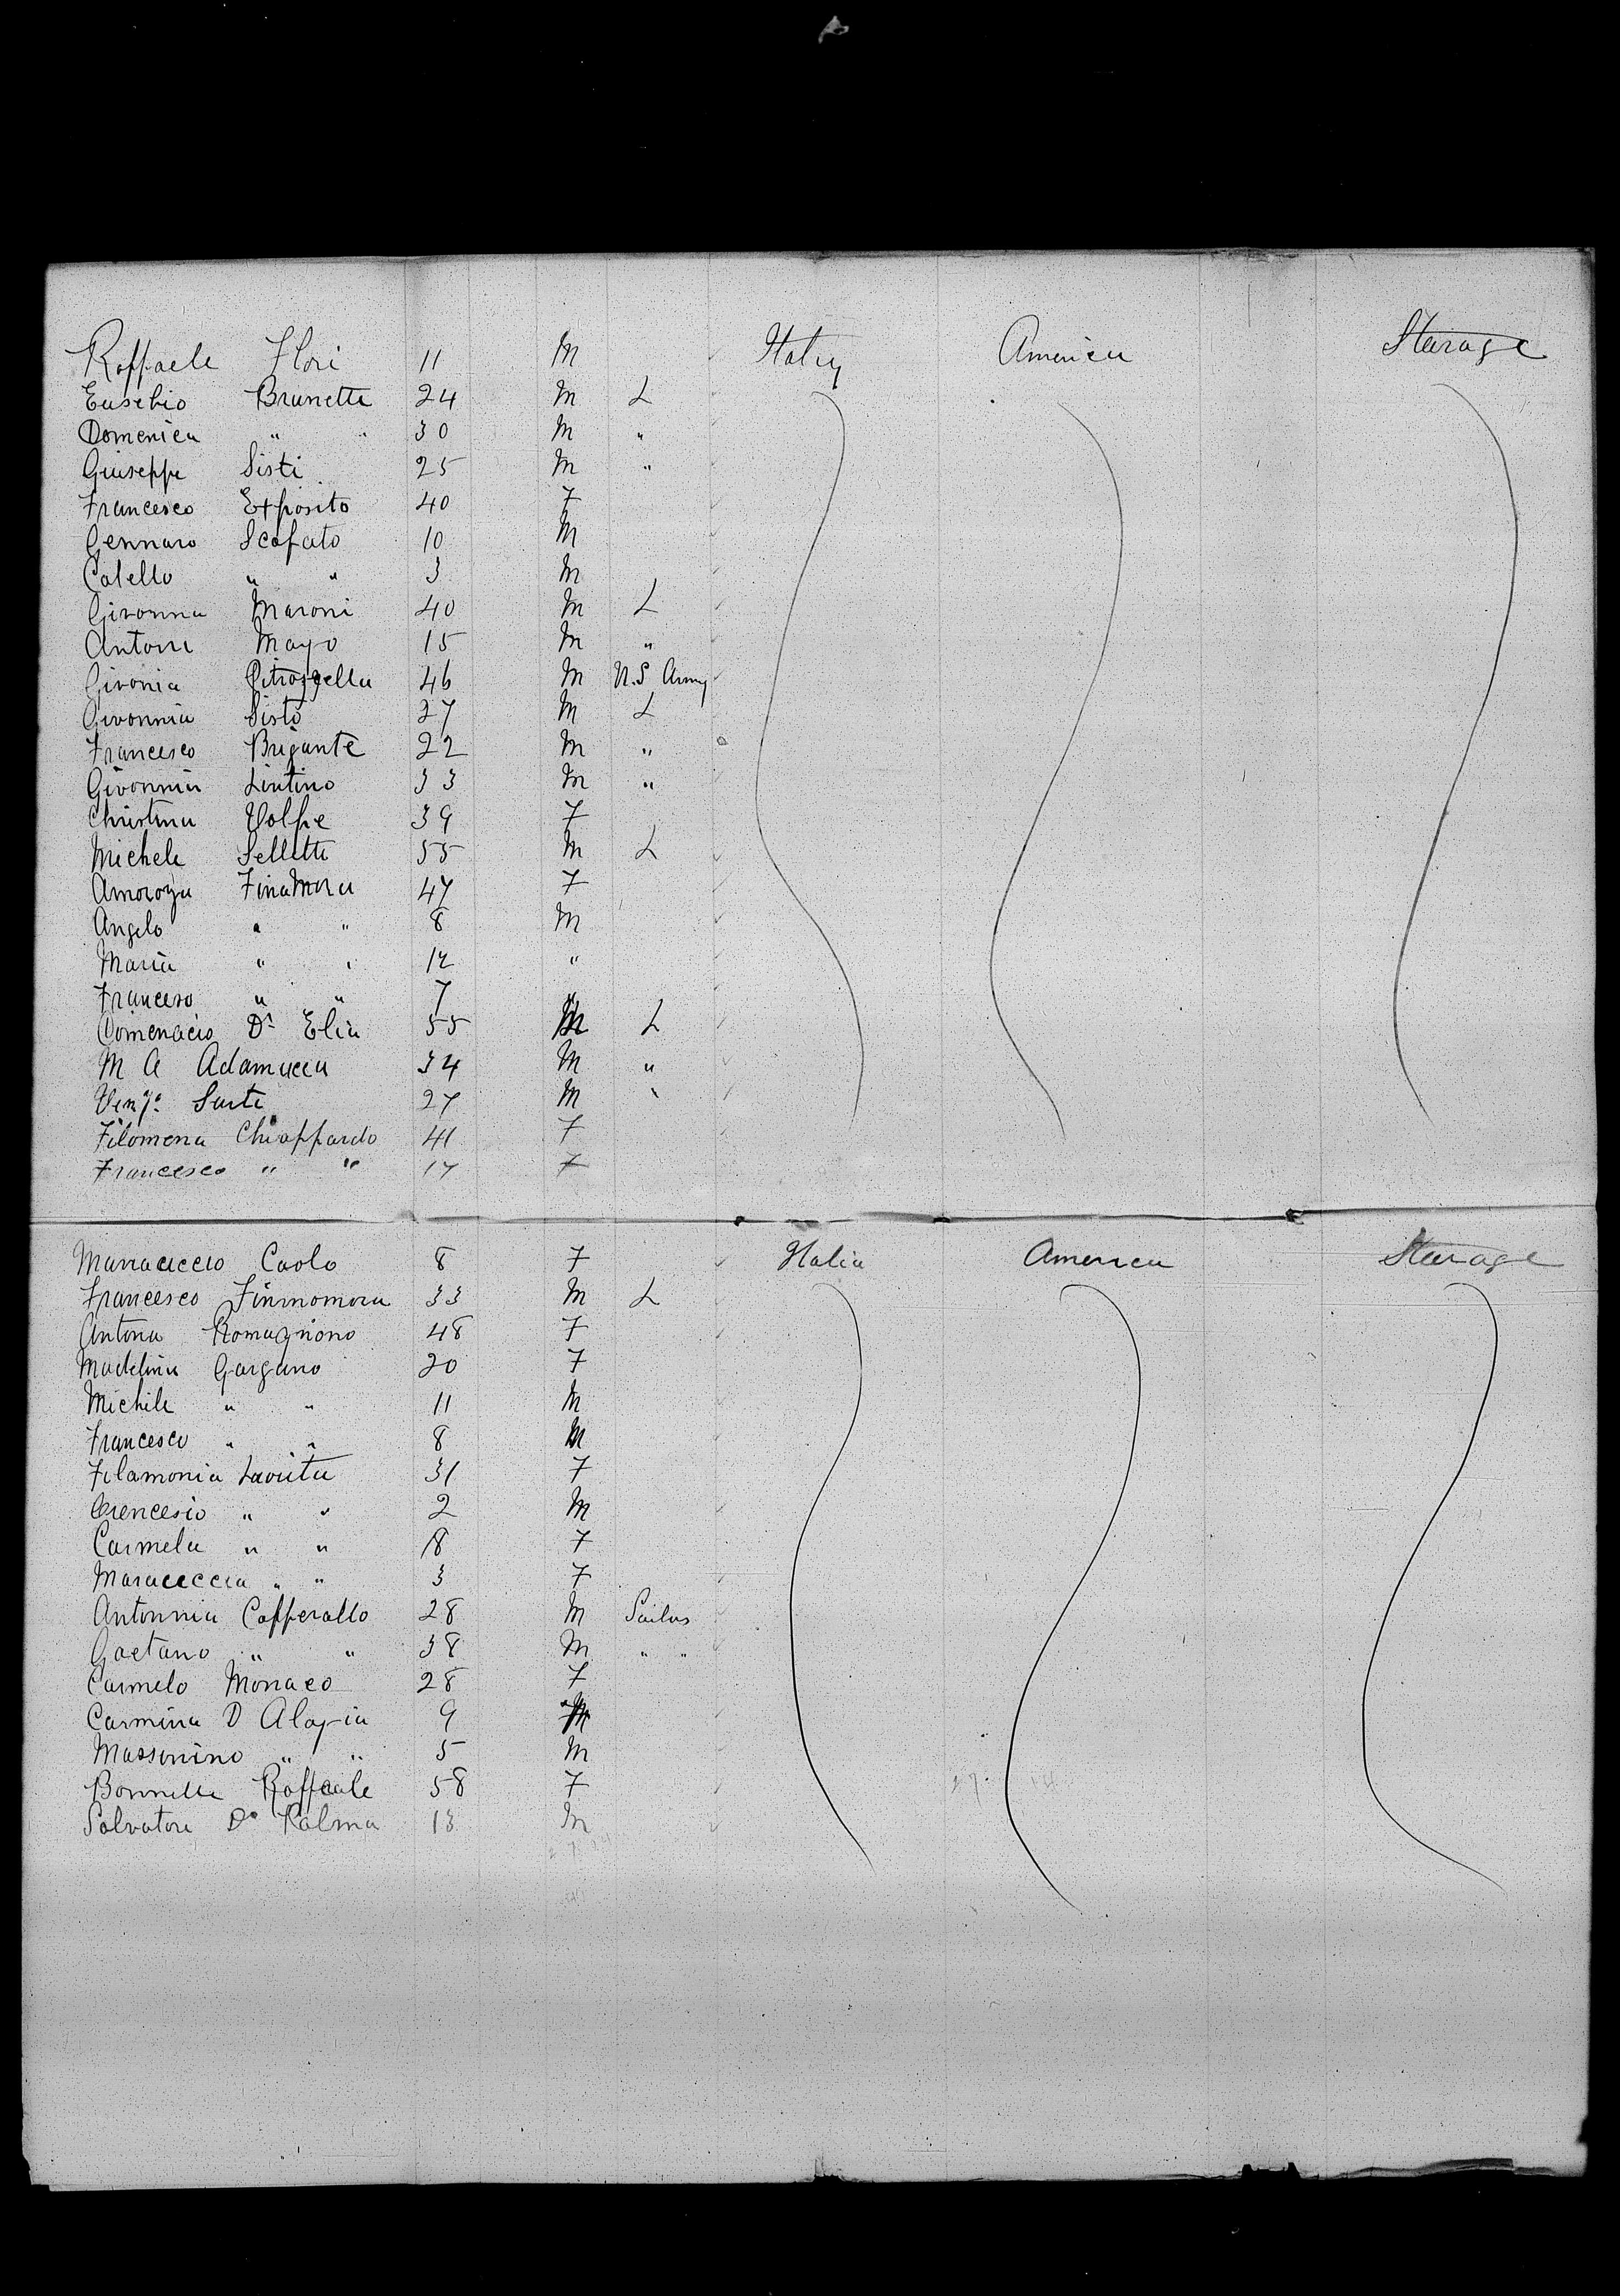 Raffaele Flori 11 M Italy America Starage
Eusebio Brunette 24 M L
Domenica " " 30 M "
Giuseppe Sisti 25 M "
Francesco Exposito 40 F
Gennaro Scafato 10 M
Catello " " 3 M
Givonna Maroni 40 M L
Antoni Mayo 15 M "
Givonia 46 M U.S Army
Givonnia Sisto 27 M L
Francesco Brigante 22 M "
Givonnia Lintino 33 M "
Christina Volpe 39 F
Michele Sellitti 55 M L
Amoroza Finamora 47 F
Angelo " " 8 M
Maria " " 12 "
Francesco " " 7 "
Domenacio Di Elia 55 M L
M A Adamucca 34 M "
Sarti 27 M "
Filomena Chiappardo 41 F
Francesco " " 17 F
Marracuccio Caolo 8 F Italia America Starage
Francesco Finnomora 33 M L
Antona Romagnono 48 F
Madelina Gargano 20 F
Michile " " 11 M
Francesco " " 8 M
Filamonia Laouta 31 F
Crencesio " " 2 M
Carmela " " 18 F
Maracuccia " " 3 F
Antonnia Capperallo 28 M Sailos
Gaetano " " 38 M " "
Carmelo Monaco 28 F
Carmina D Alozia 9 M
Massonino " " 5 M
Bonnella Raffaele 58 F
Salvatore De Kalma 13 M